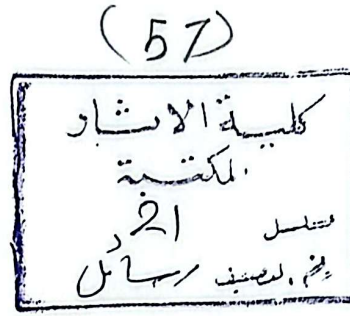 (57)
كلية الآثار
المكتبة
مسلسل 21
رقم التصنيف رسائل